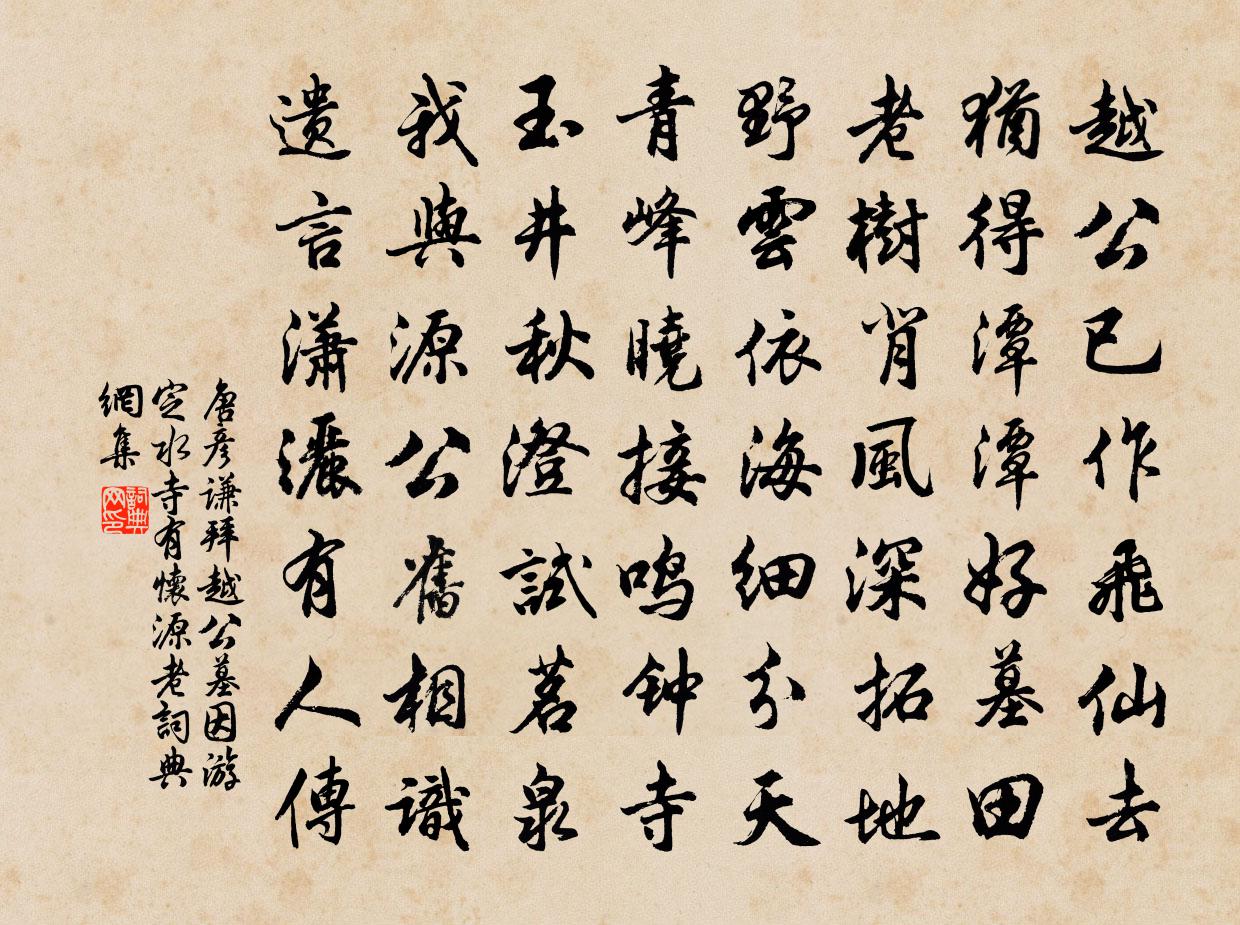 越公已作飛仙去
猶得潭潭好墓田
老樹背風深拓地
野雲依海細分天
青峰曉接鳴钟寺
玉井秋澄試茗泉
我與源公舊相識
遺言瀟灑有人傳
唐彦謙拜越公墓因游
定水寺有懷源老詞典
網集
詞典网印